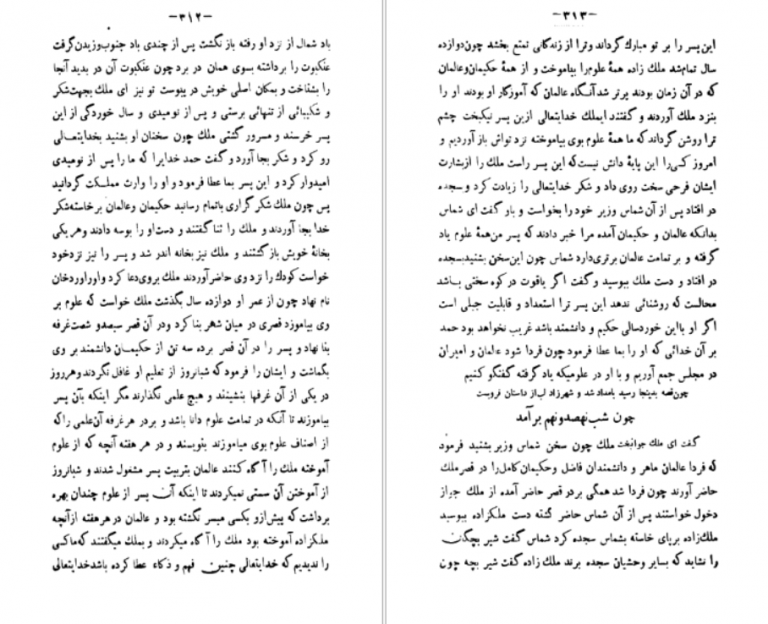 -۳۱۲-
باد شمال از نزد او رفته باز نگشت پس از چندی باد جنوب وزیدن گرفت
عنکبوت را برداشته بسوی همان در برد چون عنکبوت آن در بدید آنجا
را بشناخت و بمکان اصلی خویش در پیوست تو نیز ای ملک بجهت شکر
و شکیبائی از تنهائی برستی و پس از نومیدی و سال خوردگی از این
پسر خرسند و مسرور گشتی ملک چون سخنان او بشنید بخدایتعالی
رو کرد و شکر بجا آورد و گفت حمد خدایرا که ما را پس از نومیدی
امیدوار کرد و این پسر بما عطا فرمود و او را وارث مملکت گردانید
پس چون ملک شکر گزاری باتمام رسانید حکیمان و عالمان برخاسته شکر
خدا بجا آوردند و ملک را ثنا گفتند و دست او را بوسه دادند و هر یکی
بخانهٔ خویش باز گشتند و ملک نیز بخانه اندر شد و پسر را نیز نزد خود
خواست کودک را نزد وی حاضر آوردند ملک بروی دعا کرد و او را وردخان
نام نهاد چون از عمر او دوازده سال بگذشت ملک خواست که علوم بر
وی بیاموزد قصری در میان شهر بنا کرد و در آن قصر سیصد و شصت غرفه
بنا نهاد و پسر را در آن قصر برده سه تن از حکیمان دانشمند بر وی
بگماشت و ایشان را فرمود که شبانروز از تعلیم او غافل نگردند و هر روز
در یکی از آن غرفها بنشینند و هیچ علمی نگذارند مگر اینکه بآن پسر
بیاموزند تا آنکه در تمامت علوم دانا باشد و بر در هر غرفه آن علمی را که
از اصناف علوم بوی میاموزند بنویسند و در هر هفته آنچه که از علوم
آموخته ملک را آگاه کنند عالمان بتربیت پسر مشغول شدند و شبانروز
از آموختن آن سستی نمیکردند تا اینکه آن پسر از علوم چندان بهره
برداشت که پیش از و بکسی میسر نگشته بود و عالمان در هر هفته از آنچه
ملکزاده آموخته بود ملک را آگاه میکردند و بملک میگفتند که ما کسی
را ندیدیم که خدایتعالی چنین فهم و ذکاء عطا کرده باشد خدایتعالی
-۳۱۳-
این پسر را بر تو مبارک گرداند و ترا از زندگانی تمتع بخشد چون دوازده
سال تمام شد ملک زاده همهٔ علوم را بیاموخت و از همهٔ حکیمان و عالمان
که در آن زمان بودند برتر شد آنگاه عالمان که آموزگار او بودند او را
بنزد ملک آوردند و گفتند ایملک خدایتعالی ازین پسر نیکبخت چشم
ترا روشن گرداند که ما همهٔ علوم بوی بیاموخته نزد تواش باز آوردیم و
امروز کسی را این پایهٔ دانش نیست که این پسر راست ملک را از بشارت
ایشان فرحی سخت روی داد و شکر خدایتعالی را زیادت کرد و سجده
در افتاد پس از آن شماس وزیر خود را بخواست و باو گفت ای شماس
بدانکه عالمان و حکیمان آمده مرا خبر دادند که پسر من همهٔ علوم یاد
گرفته و بر تمامت عالمان برتری دارد شماس چون این سخن بشنید بسجده
در افتاد و دست ملک ببوسید و گفت اگر یاقوت در کوه سختی باشد
محالست که روشنائی ندهد این پسر ترا استعداد و قابلیت جبلی است
اگر او با این خورد سالی حکیم و دانشمند باشد غریب نخواهد بود حمد
بر آن خدائی که او را بما عطا فرمود چون فردا شود عالمان و امیران
در مجلس جمع آوریم و با او در علومیکه یاد گرفته گفتگو کنیم
چون قصه بدینجا رسید بامداد شد و شهرزاد لب از داستان فروبست
چون شب نهصد و نهم برآمد
گفت ای ملک جوانبخت ملک چون سخن شماس وزیر بشنید فرمود
که فردا عالمان ماهر و دانشمندان فاضل و حکیمان کامل را در قصر ملک
حاضر آورند چون فردا شد همگی بر در قصر حاضر آمده از ملک جواز
دخول خواستند پس از آن شماس حاضر گشته دست ملکزاده ببوسید
ملک زاده بر پای خاسته بشماس سجده کرد شماس گفت شیر بچگان
را نشاید که بسایر وحشیان سجده برند ملک زاده گفت شیر بچه چون